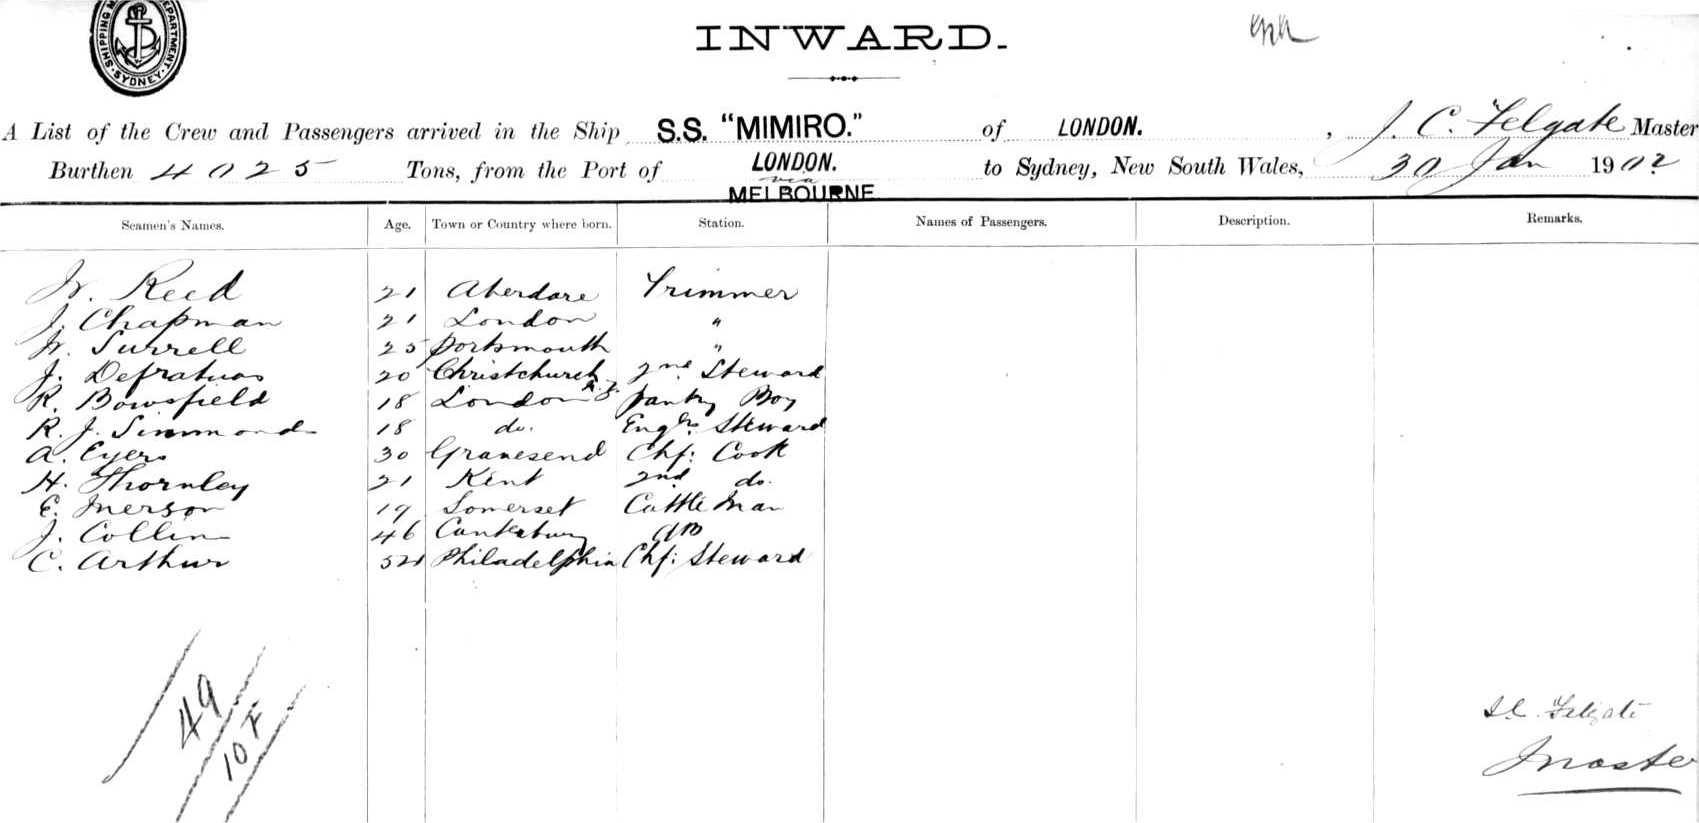 SHIPPING M DEPARTMENT. SYDNEY
INWARD.
A List of the Crew and Passengers arrived in the Ship S.S. "MIMIRO." of LONDON. , J. C. Felgate Master
Burthen 4025 Tons, from the Port of LONDON. to Sydney, New South Wales, 30 Jan 1902
via
MELBOURNE
Seamen's Names. Age. Town or Country where born. Station. Names of Passengers. Description. Remarks.
W. Reed 21 Aberdare Trimmer
J. Chapman 21 London "
W. Surrell 25 Portsmouth "
J. 20 Christchurch 2nd. Steward
N.Z.
R. Bowsfield 18 London Pantry Boy
R. J. Simmonds 18 do. Engrs. Steward
A. Eyers 30 Gravesend Chf: Cook
H. Thornley 21 Kent 2nd do.
E. Merson 19 Somerset Cattle Man
J. Collin 46 Canterbury AB
C. Arthur 52 Philadelphia Chf: Steward
49
10 F
J.C. Felgate
Master